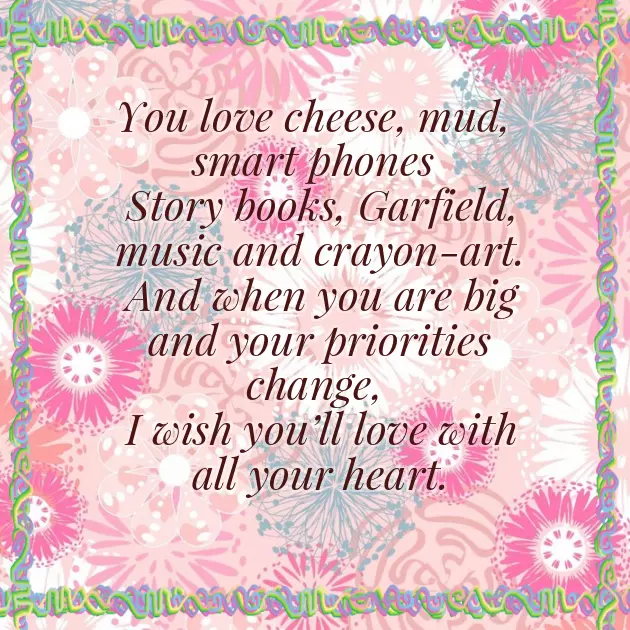 You love cheese, mud,
smart phones
Story books, Garfield,
music and crayon-art.
And when you are big
and your priorities
change,
I wish you'll love with
all your heart.